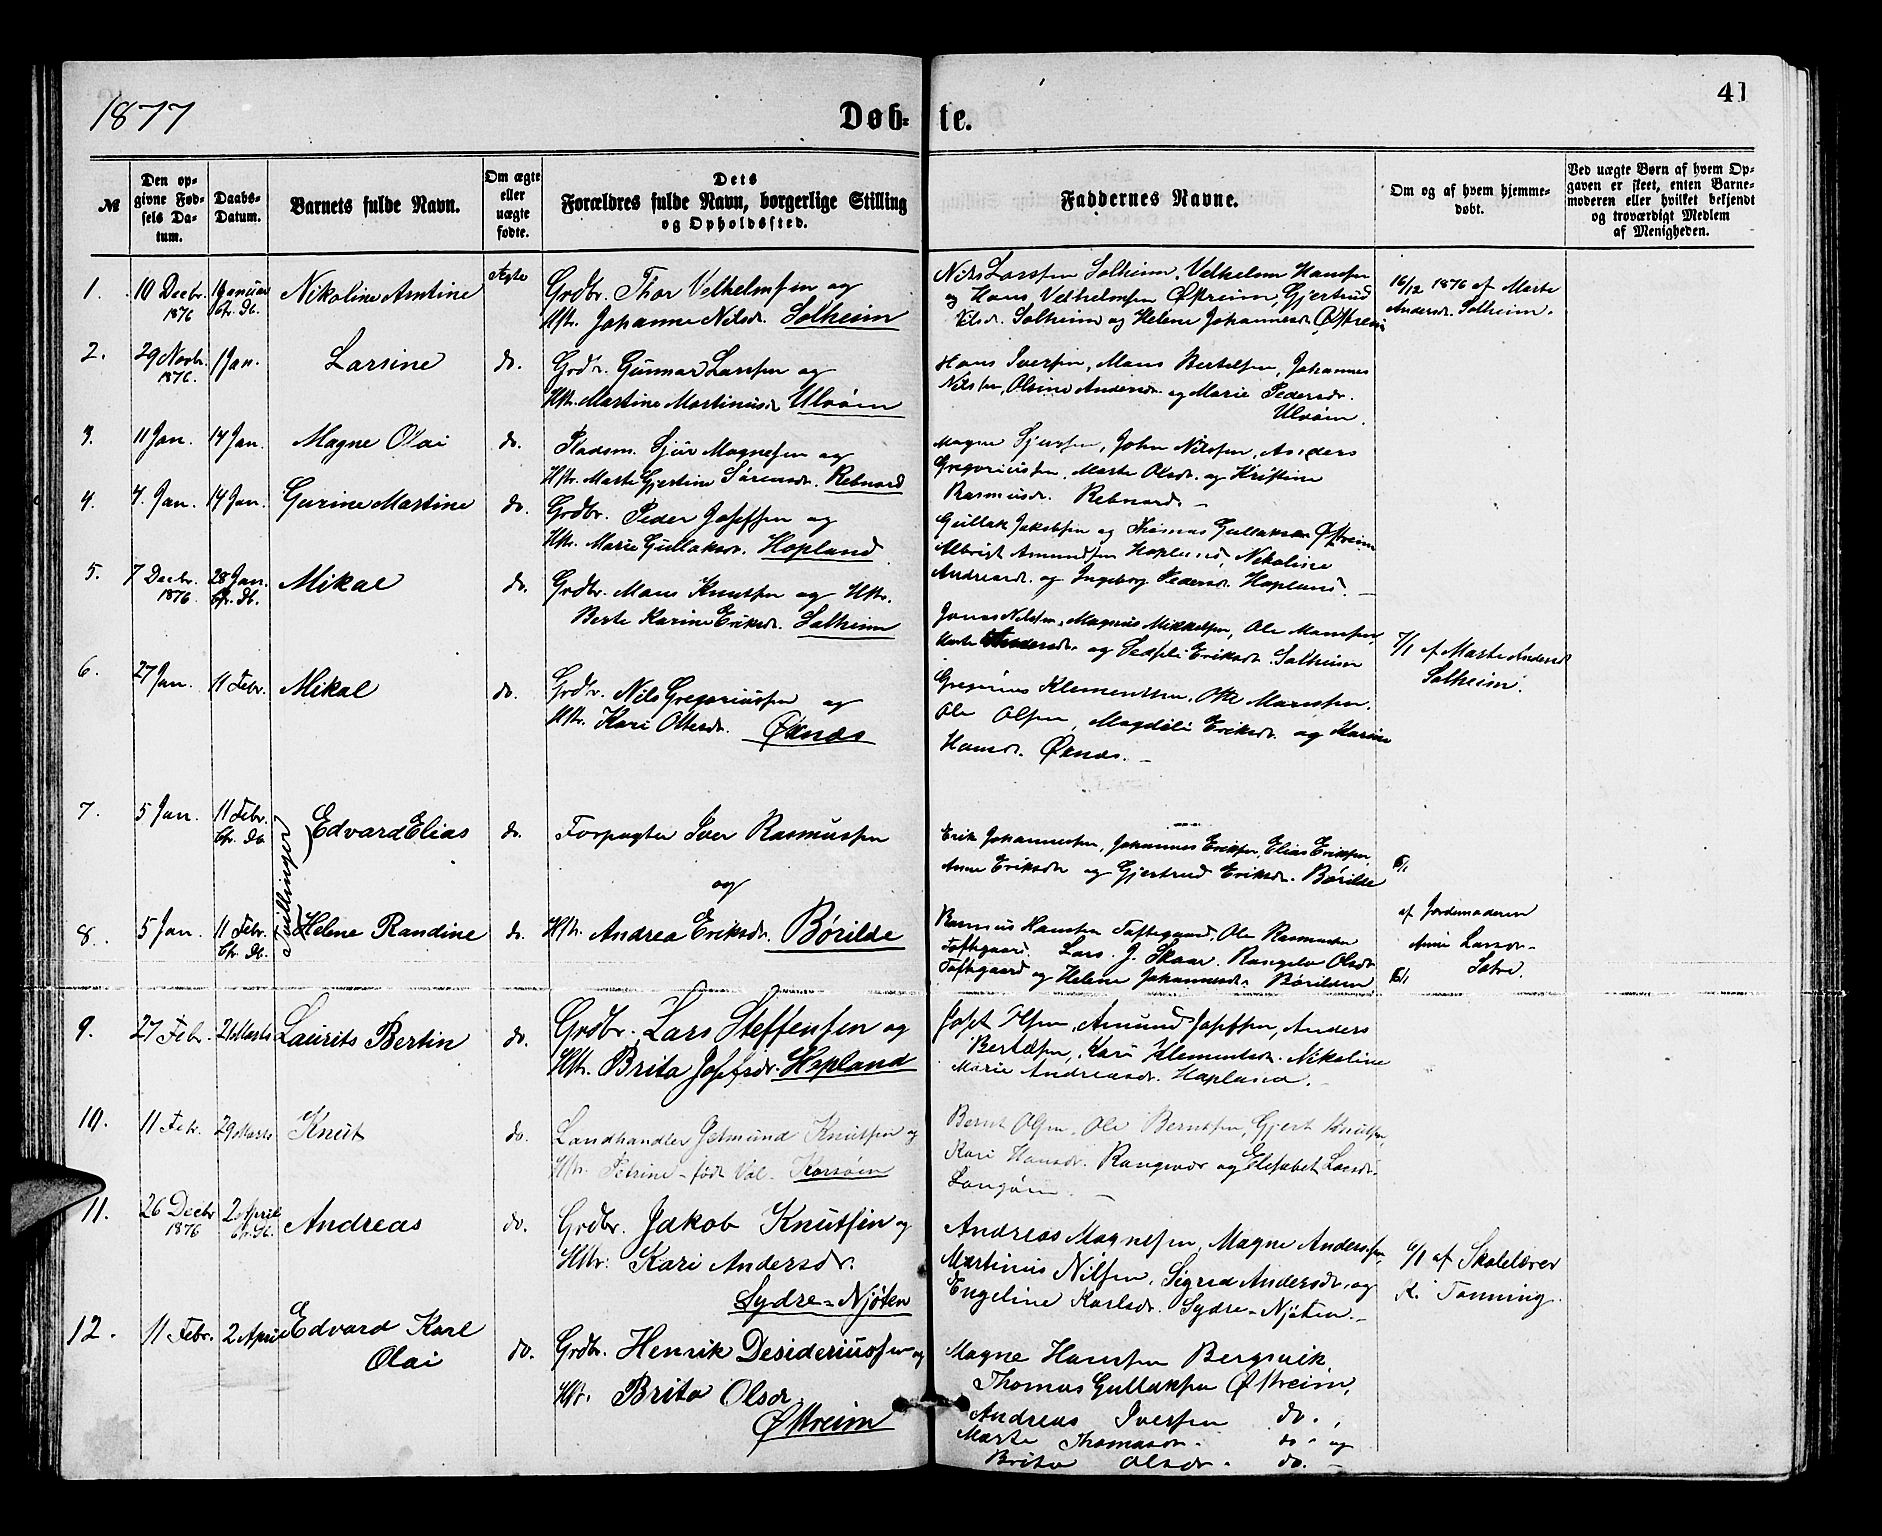 1877
Døb-te.
41
№
Den op-
givne Fød-
sels Da-
tum.
Daabs-
Datum.
Barnets fulde Navn.
Om ægte
eller
uægte
fødte.
Dets
Forældres fulde Navn, borgerlige Stilling
og Opholdssted.
Faddernes Navne.
Om og af hvem hjemme-
døbt.
Ved uægte Børn af hvem Op-
gaven er skeet, enten Barne-
moderen eller hvilket bekjendt
og troværdigt Medlem
af Menigheden.
1.
10 Decbr.
1876
1 Januar
Nikoline Amtine
Ægte
Grdbr. Thor Velhelmsen og
Hstr. Johanne Nilsdr. Solheim
Nils Larssen Solheim, Velhelm Hansen
og Hans Velhelmsen Østreim, Gjertrud
Nilsdr. Solheim og Helene Johannesdr. Østreim
16/12 1876 af Marte
Andersdr. Solheim.
2.
29 Novbr.
1876.
1 Jan.
Larsine
do.
Grdbr. Gunnar Larssen og
Hstr. Martine Martinusdr. Ulvöen
Hans Iversen, Mons Bertelsen, Johannes
Nilsen, Olsine Andersdr. og Marie Pedersdr.
Ulvöen.
3.
11 Jan.
14 Jan.
Magne Olai
do.
Pladsm. Sjur Magnesen og
Hstr. Marte Gjertine Sörensdr. Rebnord
Magne Sjursen, John Nilssen, Anders
Gregoriussen, Marte Olsdr. og Kristine
Rasmusdr. Rebnord. -
4.
7. Jan.
14 Jan.
Gurine Martine
do.
Grdbr. Peder Josefsen og
Hstr. Marie Gullaksdr. Hopland
Gullak Jakobsen og Thomas Gullaksen Østreim
Albrigt Amundsen Hopland, Nikoline
Andreasdr. og Ingeborg Pedersdr. Hopland. -
5.
7 Decbr.
1876.
28 Jan.
Mikal
do.
Grdbr. Mons Knutsen og Hstr.
Berte Karine Eriksdr. Solheim
Jonas Nilssen, Magnus Mikkelsen, Ole Monsen,
Marte Andersdr. og Sedsel Eriksdr. Solheim
7/1 af Marte Andersdr
Solheim.
6.
27 Jan.
11 Febr.
Mikal
do.
Grdbr. Nils Gregoriussen og
Hstr. Kari Ottesdr. Øxnæs
Gregorius Klementsen, Otte Monsen,
Ole Olsen, Magdeli Eriksdr. og Karine
Hansdr. Øxnæs. -
7.
5 Jan.
11 Febr.
Tvillinger
Edvard Elias
do.
Forpagter Iver Rasmussen
og
Erik Johannessen, Johannes Eriksen, Elias Eriksen,
Anne Eriksdr. og Gjertrud Eriksdr. Børilde
8.
5 Jan.
11 Febr.
Helene Randine
do.
Hstr. Andrea Eriksdr. Børilde
Rasmus Hansen Toftegaard, Ole Rasmussen
Toftegaard, Lars J. Skaar, Rangela Olsdr.
Toftegaard og Helene Johannesdr. Børilden
af Jordemoderen
Anne Larsdr.
9.
27 Febr.
21 Marts
Laurits Bertin
do.
Grdbr. Lars Steffensen og
Hstr. Brita Josefsdr. Hopland
Josef Olsen, Amund Josefsen, Anders
Bertelsen, Kari Klementsdr. Nikoline
Marie Andreasdr. Hopland. -
10.
11 Febr.
29 Marts
Knut
do.
Landhandler Gelmund Knutsen og
Hstr. Petrine - født Val. Korsöen
Bernt Olsen, Ole Berntsen, Gjert Knutsen,
Kari Hansdr. Rangevær og Elisabet Larsdr.
Langöen. -
11.
26 Decbr
1876
2 April
Andreas
do.
Grdbr. Jakob Knutsen og
Hstr. Kari Andersdr.
Sydre-Njøten
Andreas Magnesen, Magne Anderssen,
Martinus Nilsen, Sigrid Andersdr. og
Engeline Karlsdr. Sydre-Njøten. -
6/1 af Skolelærer
K. Tonning.
12.
11 Febr.
2 April
Edvard Karl
Olai
do.
Grdbr. Henrik Desideriussen og
Hstr. Brita Olsdr.
Østreim
Magne Hanssen Bergsvik,
Thomas Gullaksen Østreim,
Andreas Iversen do.,
Marte Thomasdr. do. og
Brita Olsdr. do. -